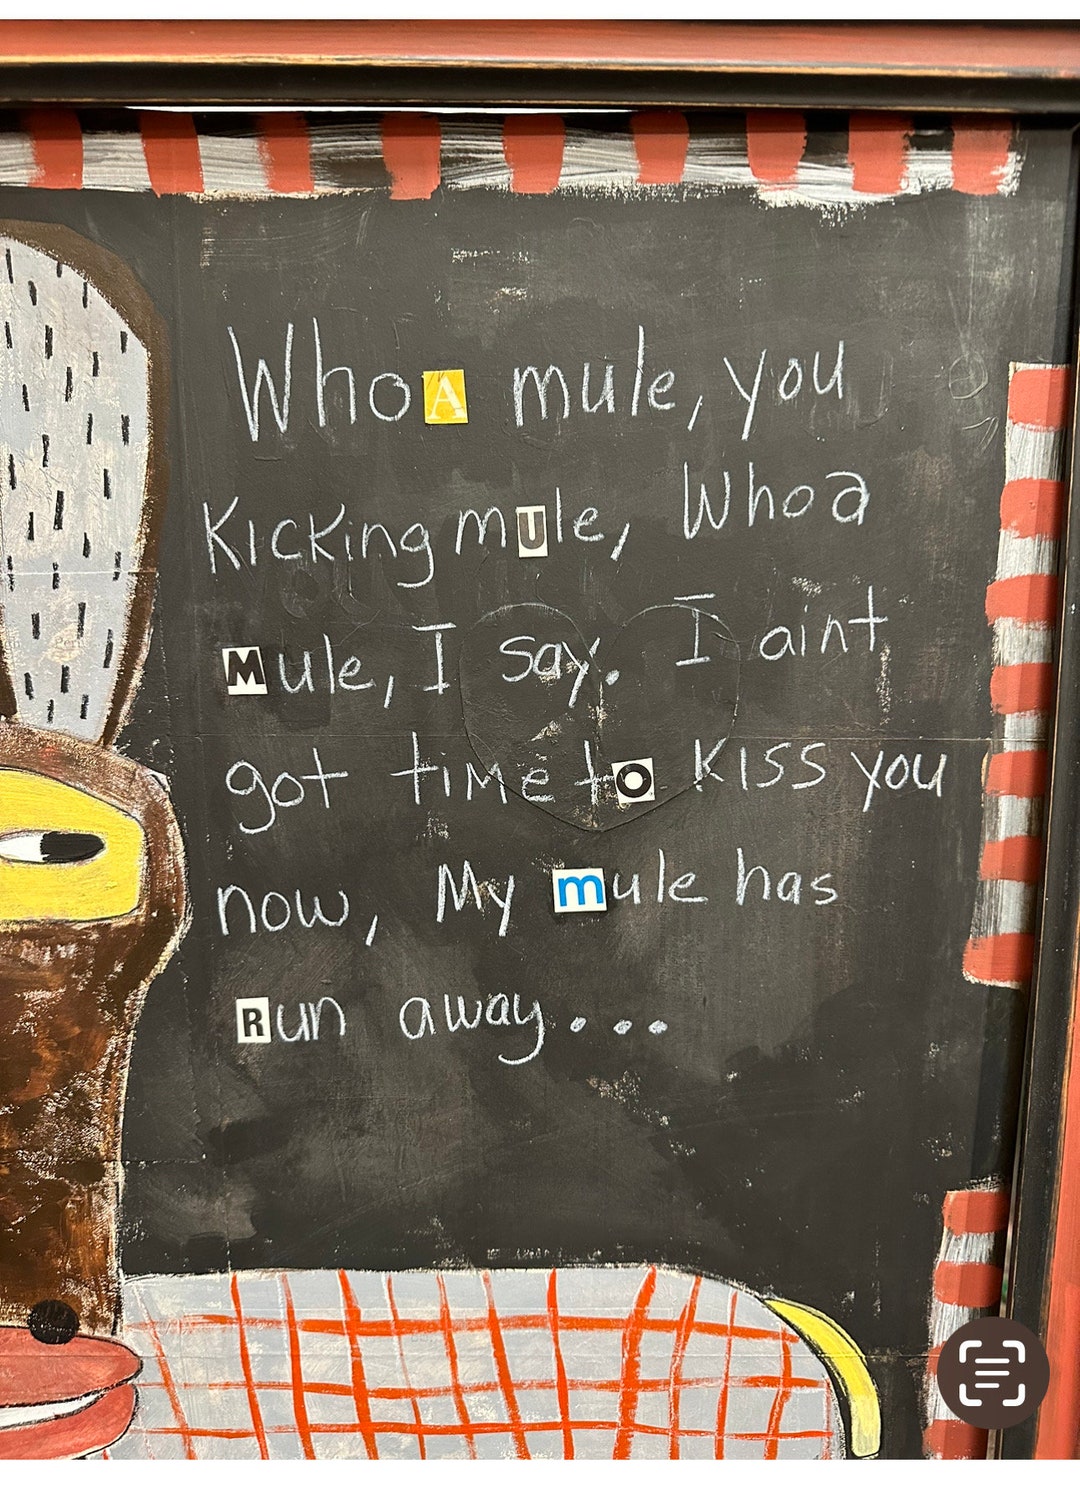 WhoA mule, you
Kicking mUle, Whoa
Mule, I say. I aint
got time to KISS you
now, My mule has
Run away...